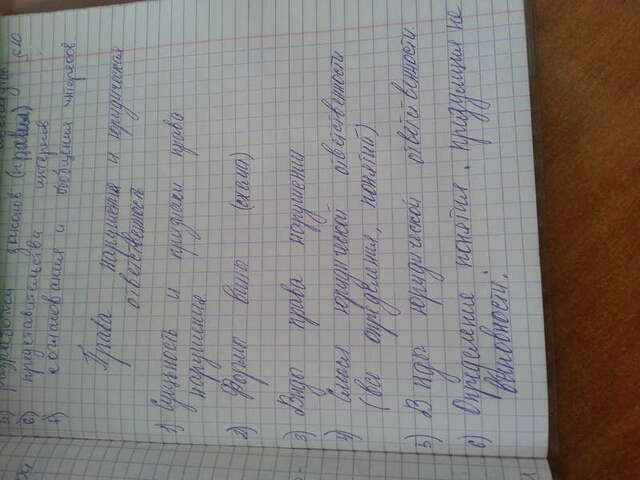 законов (правил)
е) представительства интересов
f) согласования и обобщения интересов
Права нарушения и юридическая
ответственность
1) Сущность и признаки право
нарушения
2) Формы вины (схема)
3) Виды права нарушении
4) Смысл юридической ответственности
(все определения, понятий)
5) Виды юридической ответственности
6) Определение понятия "презумпция не
виновности".